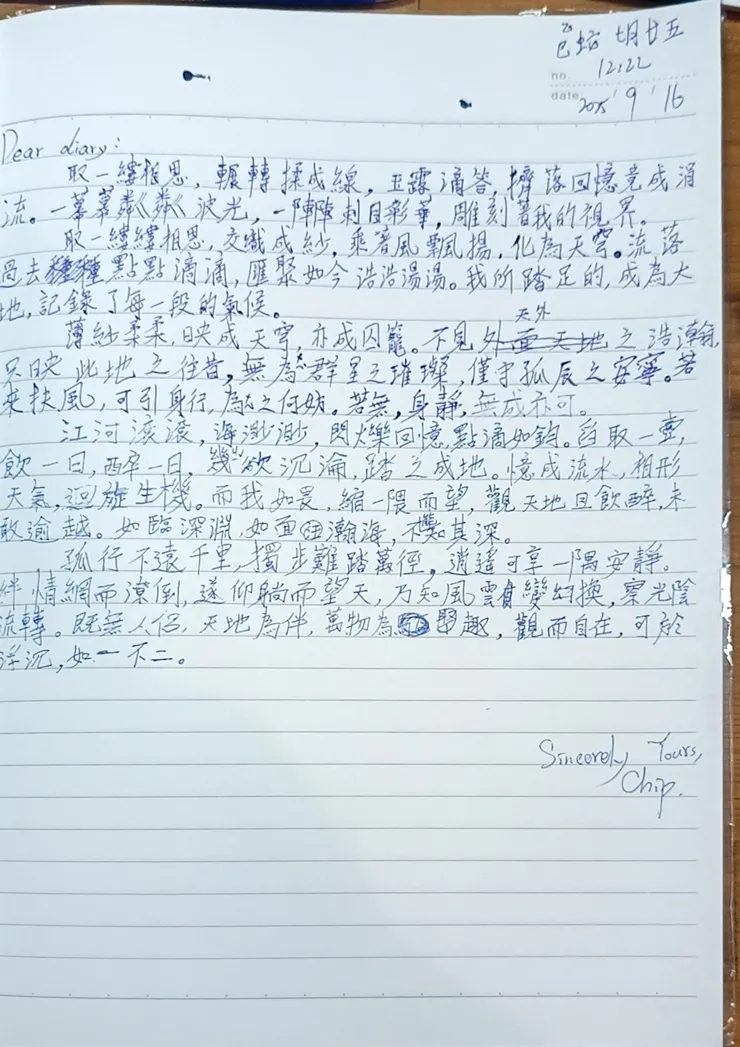 乙巳 七月廿五
no. 12:22
date 2025 ' 9 ' 16
Dear diary:
取一縷相思，輾轉揉成線，玉露滴答，擠落回憶竟成涓
流。一幕幕粼粼波光，一陣陣刺目彩華，雕刻著我的視界。
取一縷縷相思，交織成紗，乘著風飄揚，化為天穹。流落
過去種種點點滴滴，匯聚如今浩浩湯湯。我所踏足的，成為大
地，記錄了每一段的氣候。
薄紗柔柔，映成天穹，亦成囚籠。不見天外之浩瀚，
只映此地之往昔，無為群星之璀璨，僅守孤辰之安寧。若
來扶風，可引身行，為之何妨。若無，身靜，無成亦可。
江河滾滾，海渺渺，閃爍回憶點滴如鈞。舀取一壺，
飲一日，醉一日，幾欲沉淪，踏之成地。憶成流水，相形
天氣，迴旋生機。而我如是，縮一隈而望，觀天地且飲醉，未
敢逾越。如臨深淵，如面瀚海，不知其深。
孤行不遠千里，獨步難踏萬徑。逍遙可享一隅安靜。
絆情網而潦倒，遂仰躺而望天，乃知風雲變幻換，察光陰
流轉。既無人侶，天地為伴，萬物為趣，觀而自在，可於
浮沉，如一不二。
Sincerely Yours,
Chip.